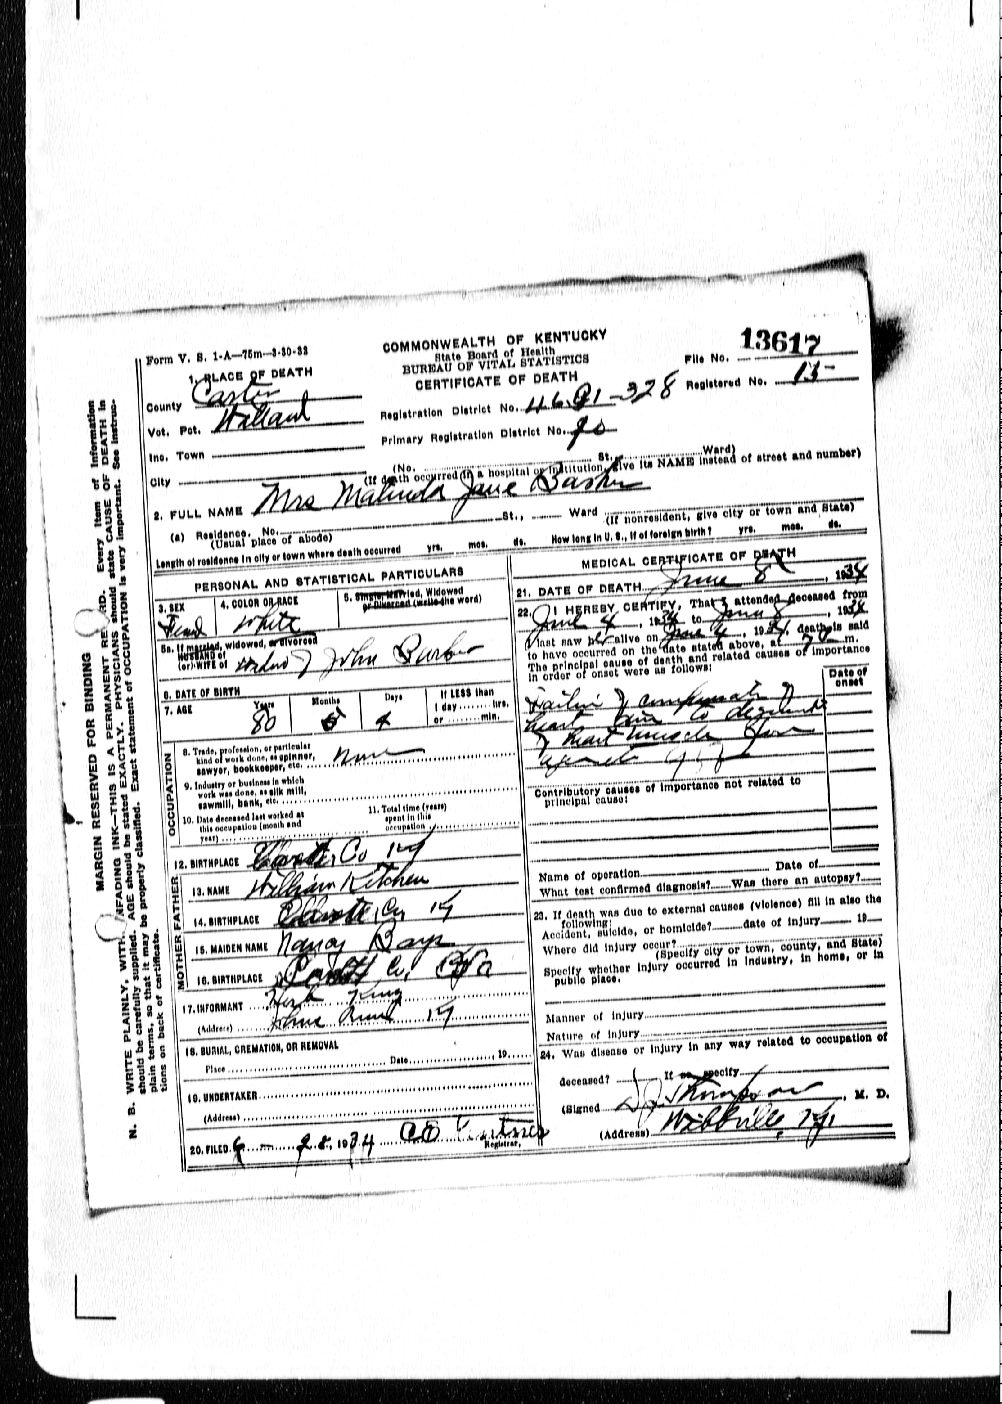 Form V. S. 1-A—75m—3-30-33
COMMONWEALTH OF KENTUCKY
State Board of Health
BUREAU OF VITAL STATISTICS
CERTIFICATE OF DEATH
File No. 13617
Registered No. 15-
1. PLACE OF DEATH
County Carter
Vot. Pct. Willard
Inc. Town
City
Registration District No.
Primary Registration District No. 90
(No. St. Ward)
(If death occurred in a hospital or institution, give its NAME instead of street and number)
2. FULL NAME Mrs Malinda Jane Barber
(a) Residence. No. St., Ward
(Usual place of abode) (If nonresident, give city or town and State)
Length of residence in city or town where death occurred yrs. mos. ds. How long in U. S., if of foreign birth? yrs. mos. ds.
PERSONAL AND STATISTICAL PARTICULARS
3. SEX Femal
4. COLOR OR RACE White
5. Single, Married, Widowed or Divorced (write the word)
5a. If married, widowed, or divorced
HUSBAND of
(or) WIFE of John Barber
6. DATE OF BIRTH
7. AGE Years 80 Months 5 Days 4 If LESS than 1 day hrs. or min.
OCCUPATION
8. Trade, profession, or particular kind of work done, as spinner, sawyer, bookkeeper, etc. None
9. Industry or business in which work was done, as silk mill, sawmill, bank, etc.
10. Date deceased last worked at this occupation (month and year)
11. Total time (years) spent in this occupation
12. BIRTHPLACE Carter Co Ky
FATHER
13. NAME William Kitchen
14. BIRTHPLACE Elliott Co Ky
MOTHER
15. MAIDEN NAME Nancy Bays
16. BIRTHPLACE Co,
17. INFORMANT Herb King
(Address) Ky
18. BURIAL, CREMATION, OR REMOVAL
Place Date 19
19. UNDERTAKER
(Address)
20. FILED 6 - 28, 1934
Registrar.
MEDICAL CERTIFICATE OF DEATH
21. DATE OF DEATH June 8, 1934
22. I HEREBY CERTIFY, That I attended deceased from
June 4, 1934 to June 8, 1934
I last saw her alive on June 4, 1934, death is said
to have occurred on the date stated above, at 7 m.
The principal cause of death and related causes of importance
in order of onset were as follows:
Date of onset
of
heart due to
of heart muscle from
Contributory causes of importance not related to
principal cause:
Name of operation Date of
What test confirmed diagnosis? Was there an autopsy?
23. If death was due to external causes (violence) fill in also the
following:
Accident, suicide, or homicide? date of injury 19
Where did injury occur?
(Specify city or town, county, and State)
Specify whether injury occurred in industry, in home, or in
public place.
Manner of injury
Nature of injury
24. Was disease or injury in any way related to occupation of
deceased? If so, specify
(Signed Thompson, M. D.
(Address) Webbville, Ky
MARGIN RESERVED FOR BINDING
N. B. WRITE PLAINLY, WITH UNFADING INK—THIS IS A PERMANENT RECORD. Every item of information
should be carefully supplied. AGE should be stated EXACTLY. PHYSICIANS should state CAUSE OF DEATH in
plain terms, so that it may be properly classified. Exact statement of OCCUPATION is very important. See instruc-
tions on back of certificate.